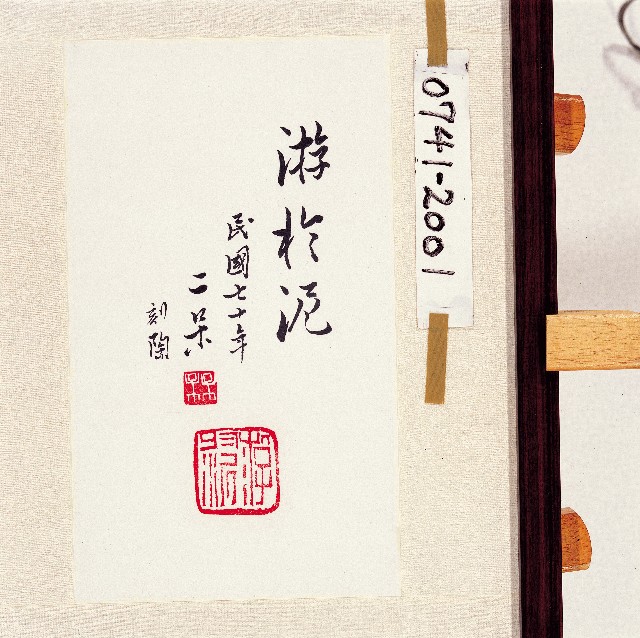 0741-2001
游於泥
民國七十年
二呆
刻陶